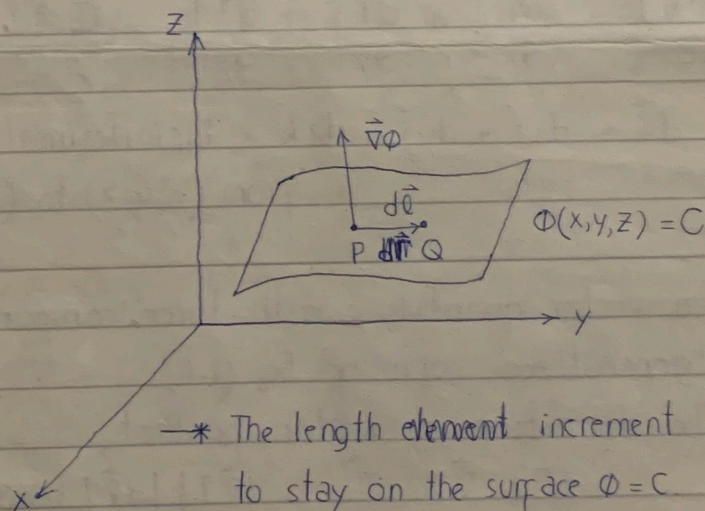 Z
∇⃗Φ
dℓ⃗
Φ(x,y,z) = C
P Q
y
—* The length element increment
x
to stay on the surface Φ = C.